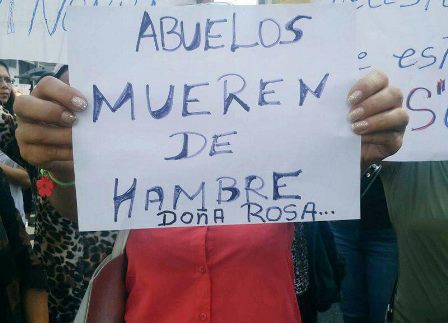 ABUELOS
MUEREN
DE
HAMBRE
DOÑA ROSA...